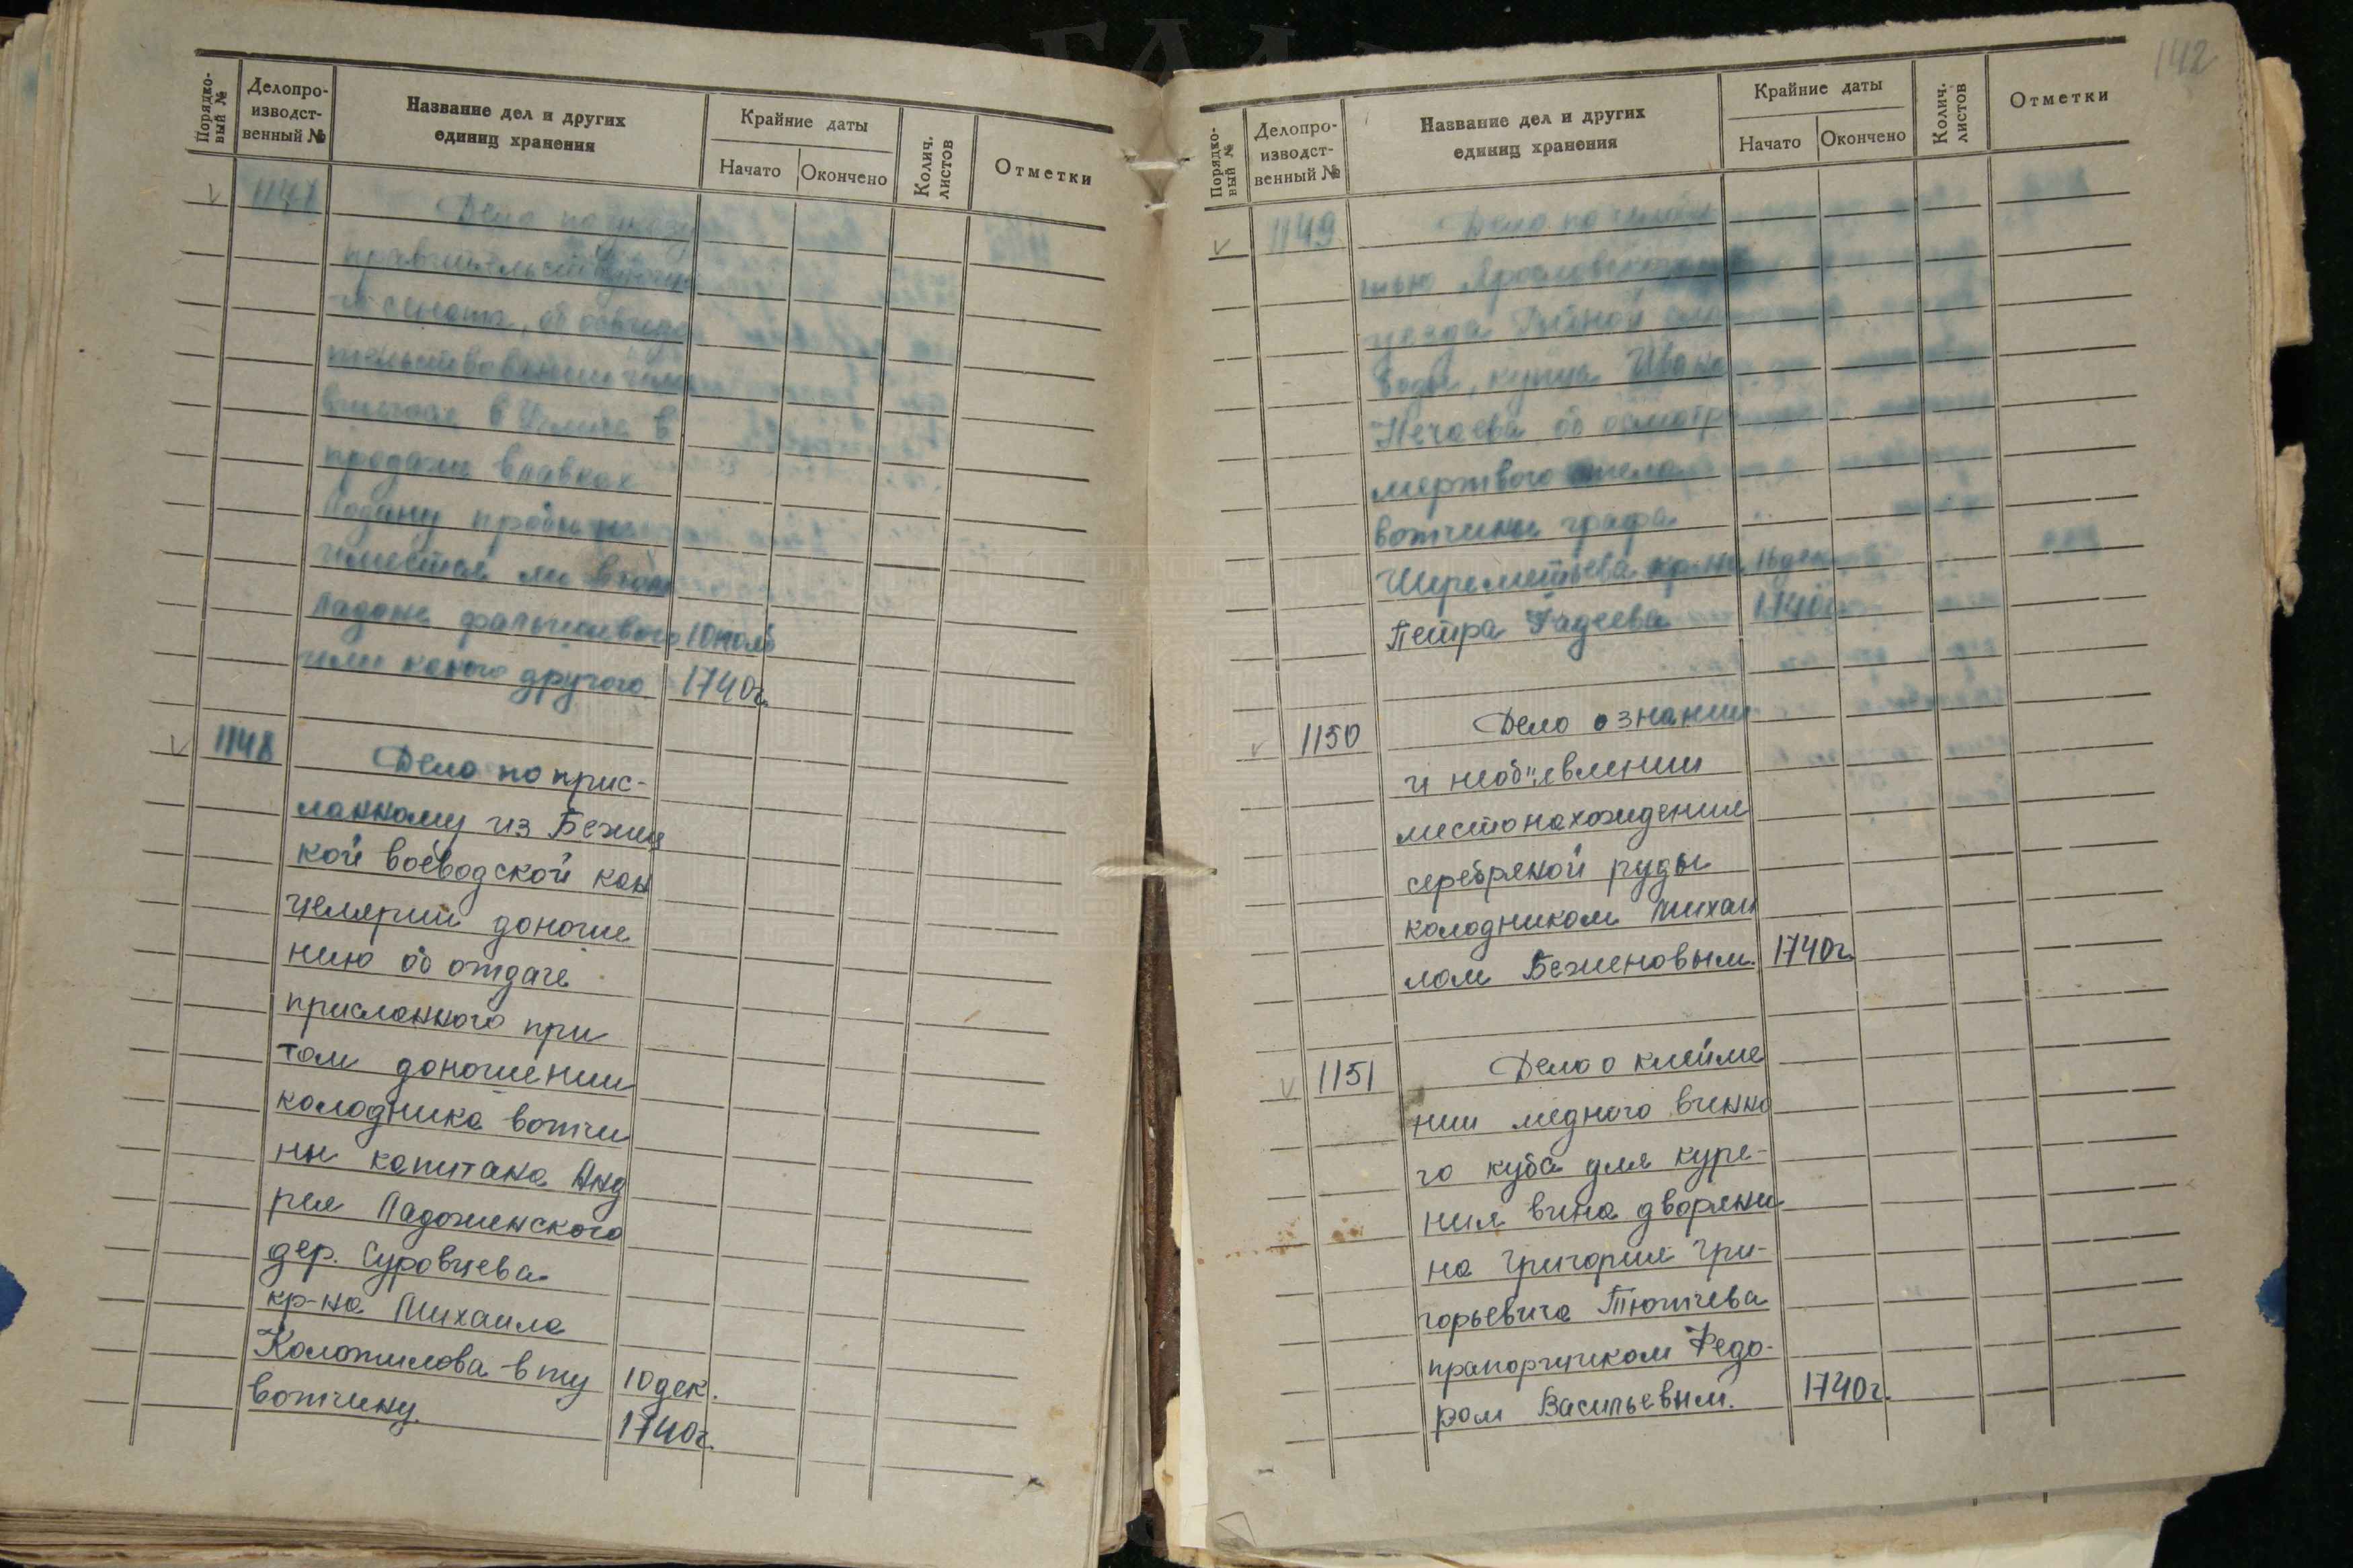 Порядко-
вый №
Делопро-
изводст-
венный №
Название дел и других
единиц хранения
Крайние даты
Начато
Окончено
Колич.
листов
Отметки
1147
Дело по указу
правительствующе
го сената, об освиде
тельствовании
в Угличе в
продаже в лавках
ладану
имеется ли в том
ладоне фальшивого 10 нояб
или какого другого 1740г.
1148
Дело по прис-
ланному из Бежец
кой воеводской кан
целярии доноше
нию об отдаче
присланного при
том доношении
колодника вотчи
ны капитана Анд
рея Ладоженского
дер. Суровцева
кр-на Михаила
Колотилова в ту 10 дек.
вотчину. 1740г.
142
Порядко-
вый №
Делопро-
изводст-
венный №
Название дел и других
единиц хранения
Крайние даты
Начато
Окончено
Колич.
листов
Отметки
1149
Дело по челоби
тью Ярославского
уезда
воды, купца Ивана
Нечаева об осмотре
мертвого тела
вотчины графа
Шереметьева кр-на 16 дек
Петра Фадеева 1740г.
1150
Дело о знании
и необ"явлении
местонахождение
серебряной руды
колодником Михаи
лом Беженовым. 1740г.
1151
Дело о клейме
нии медного винно
го куба для куре-
ния вина дворяни
на Григория Гри-
горьевича Тютчева
прапорщиком Федо-
ром Васильевым. 1740г.